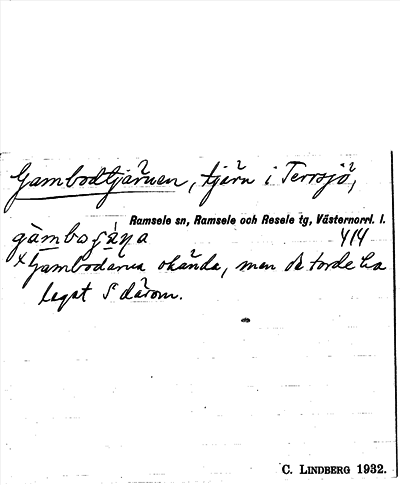 Gambodtjärnen, tjärn i Terrsjö,
Ramsele sn, Ramsele och Resele tg, Västernorrl. l.
414
×Gambodarna okända, men de torde ha
legat S därom.
C. LINDBERG 1932.